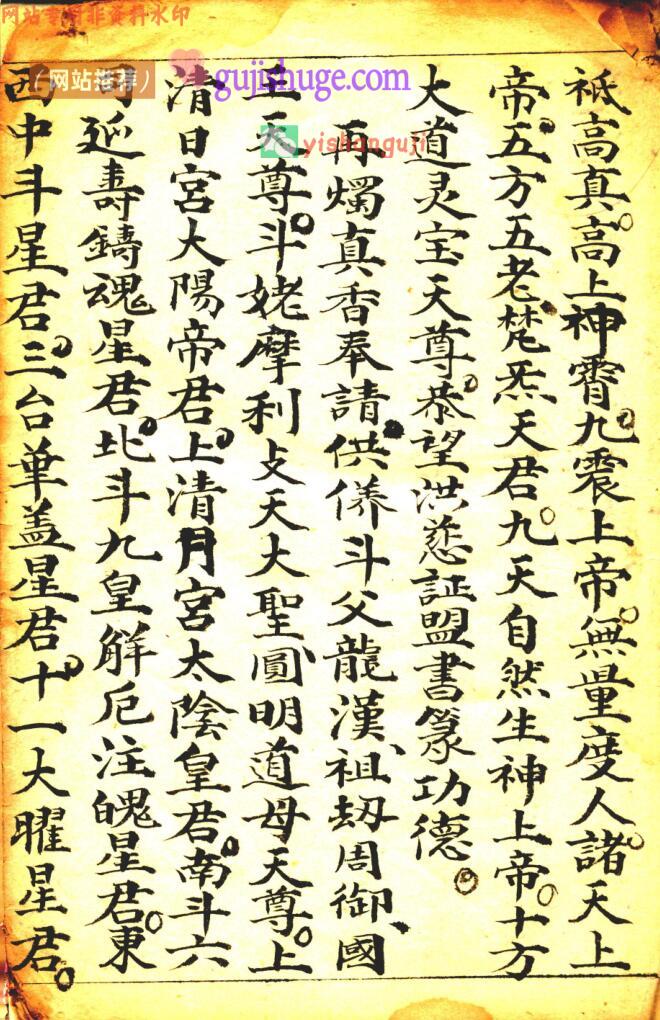 网站专用非资料水印
（网站推荐）
gujishuge.com
yishanguji
祗高真。高上神霄九震上帝。無量度人諸天上
帝。五方五老梵炁天君。九天自然生神上帝。十方
大道灵宝天尊。恭望洪慈証盟書篆功德。
再燭真香奉請。供養斗父龍漢、祖劫周御、國
王天尊。斗姥摩利攴天大聖、圓明道母天尊。上
清日宮太陽帝君。上清月宮太陰皇君。南斗六
司延壽鑄魂星君。北斗九皇解厄注魄星君。東
西中斗星君。三台華盖星君。十一大曜星君。